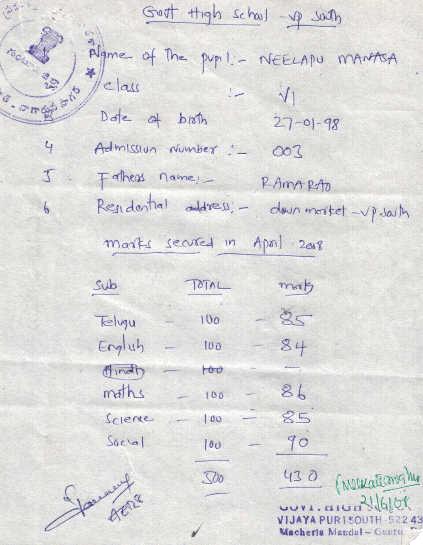 Govt High School - vp south
Name of the pupil :- NEELAPU MANASA
class :- VI
Date of birth 27-01-98
4 Admission Number :- 003
5 Fathers name :- RAMA RAO
6 Residential address :- down market - vp. south
marks secured in April 2008
Sub TOTAL marks
Telugu - 100 - 85
English - 100 - 84
Hindi - 100 -
maths - 100 - 86
Science - 100 - 85
Social 100 - 90
500 430
GOVT. HIGH
VIJAYAPURI SOUTH - 522 43
Macherla Mandal - Guntu